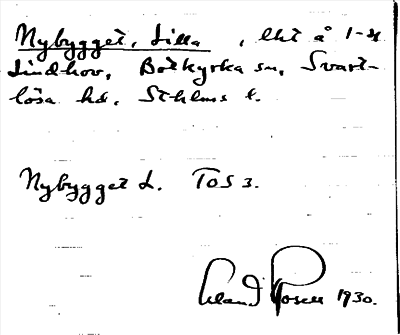 Nybygget, Lilla, lht å 1-4
Lindhov, Botkyrka sn, Svart-
lösa hd, Sthlms l.
Nybygget L. TOS 3.
1930.